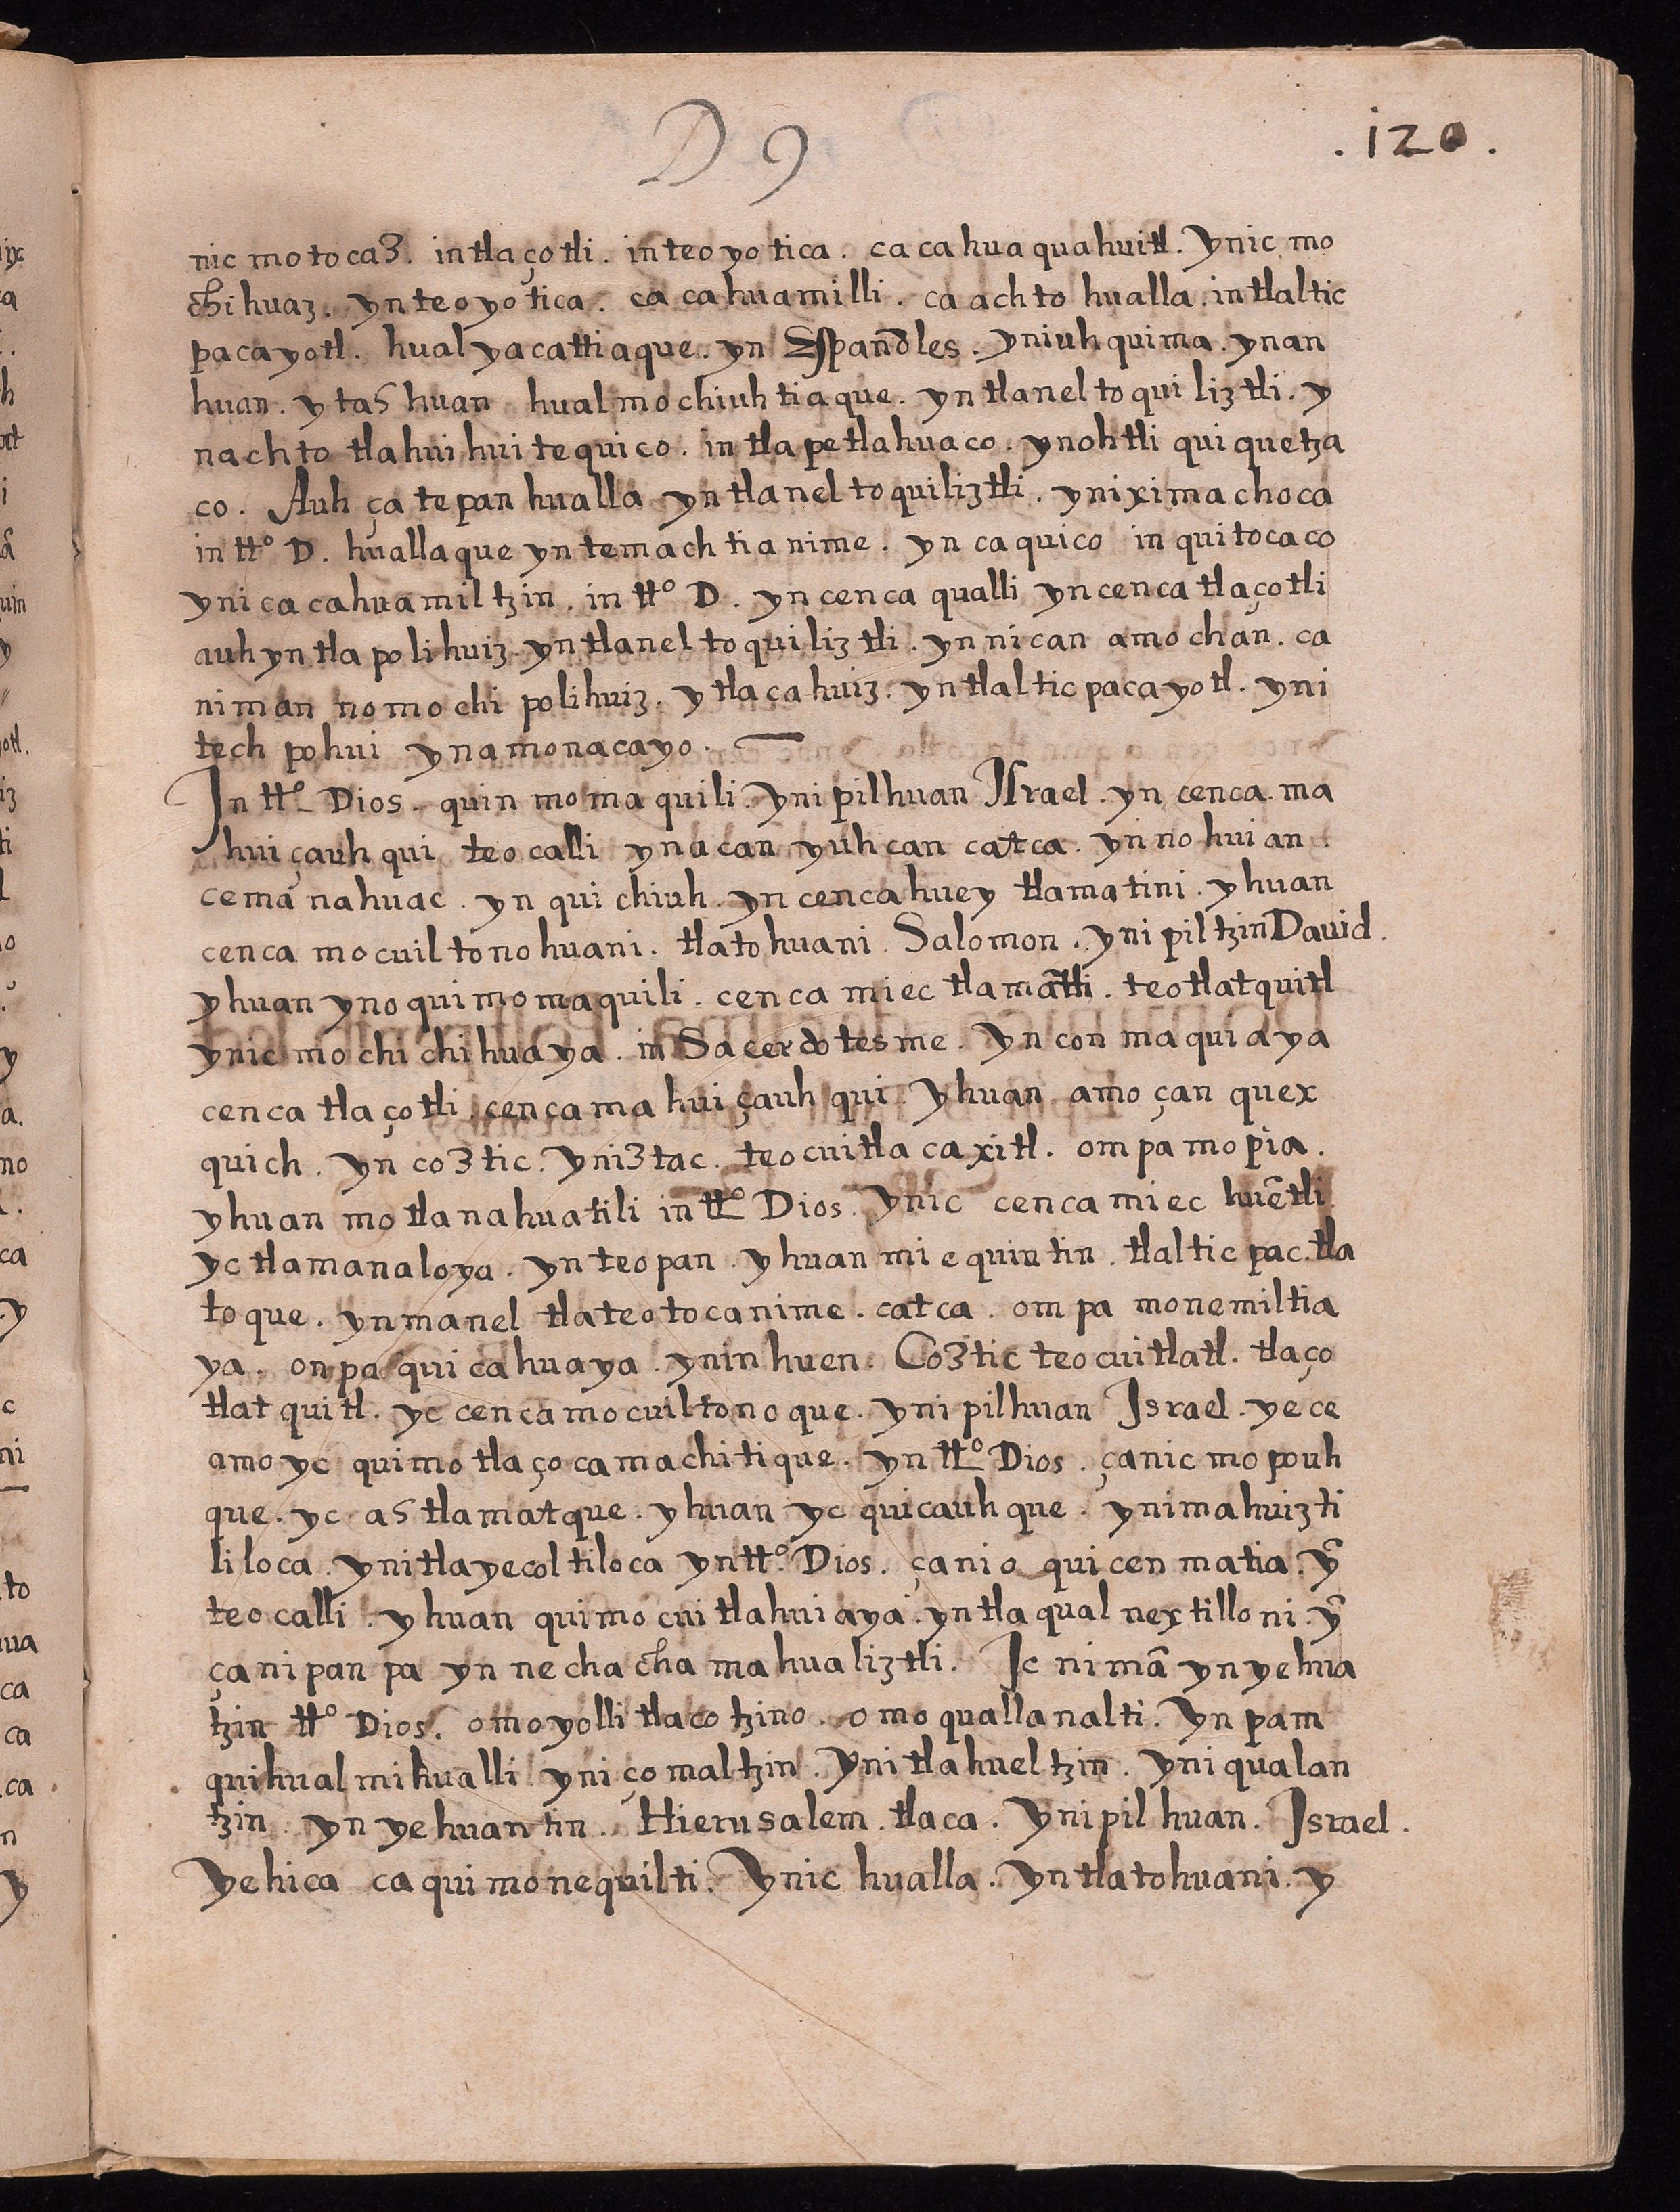 D 9
.120.
nic motocaz. in tlaçotli. in teoyotica. cacahuaquahuitl. Ynic mo
chihuaz. yn teoyotica. cacahuamilli. ca achto hualla. in tlaltic
pacayotl. hualyacattiaque. yn Españoles. yniuhquima. ynan
huan. ytashuan hualmochiuhtiaque. yn tlaneltoquiliztli. y
nachto tlahuihuitequico. in tlapetlahuaco. ynohtli quiquetza
co. Auh çatepan hualla yn tlaneltoquiliztli. yniximachoca
in tt.º D. huallaque yn temachtianime. yn caquico in quitocaco
ynicacahuamiltzin. in tt.º D. yn cenca qualli yn cenca tlaçotli
auh yntla polihuiz. yn tlaneltoquiliztli. yn nican amochan. ca
niman no mochi polihuiz. ytlacahuiz. yn tlalticpacayotl. yni
tech pohui yn amonacayo.
In tt.º Dios. quinmomaquili. ynipilhuan Israel. yn cenca ma
huiçauhqui teocalli yn acan yuhcan catca. yn nohuian
cemānahuac. yn quichiuh. yn cenca huey tlamatini. yhuan
cenca mocuiltonohuani. tlatohuani. Salomon. ynipiltzin David.
yhuan ynoquimomaquili. cenca miec tlamātli. teotlatquitl
ynic mochichihuaya. in Sacerdotesme. yn conmaquiaya
cenca tlaçotli. cenca mahuiçauhqui. Yhuan amo çan quex
quich. yn coztic. yniztac. teocuitlacaxitl. ompa mopia.
yhuan motlanahuatili in tt.º Dios. ynic cenca miec huētli
yc tlamanaloya. yn teopan. yhuan miequintin. tlalticpac. tla
toque. ynmanel tlateotocanime. catca. ompa monemiltia
ya. onpa quicahuaya. yninhuen. Coztic teocuitlatl. tlaço
tlatquitl. yc cenca mocuiltonoque. ynipilhuan Israel. yece
amo yc quimotlaçocamachitique. yn tt.º Dios. çanic mopouh
que. yc astlamatque. yhuan yc quicauhque. ynimahuizti
liloca. ynitlayecoltiloca yn tt.º Dios. çanio quicenmatia. ỹ
teocalli. yhuan quimocuitlahuiaya. yn tlaqualnextilloni. ỹ
çanipanpa yn nechachamahualiztli. Ic nimā ynyehua
tzin tt.º Dios. omoyollitlacotzino. omoquallanalti. Yn pam
quihualmihualli yniçomaltzin. Ynitlahueltzin. yniqualan
tzin. yn yehuantin. Hierusalem. tlaca. Ynipilhuan. Israel.
Yehica ca quimonequilti. Ynic hualla. Yn tlatohuani. y